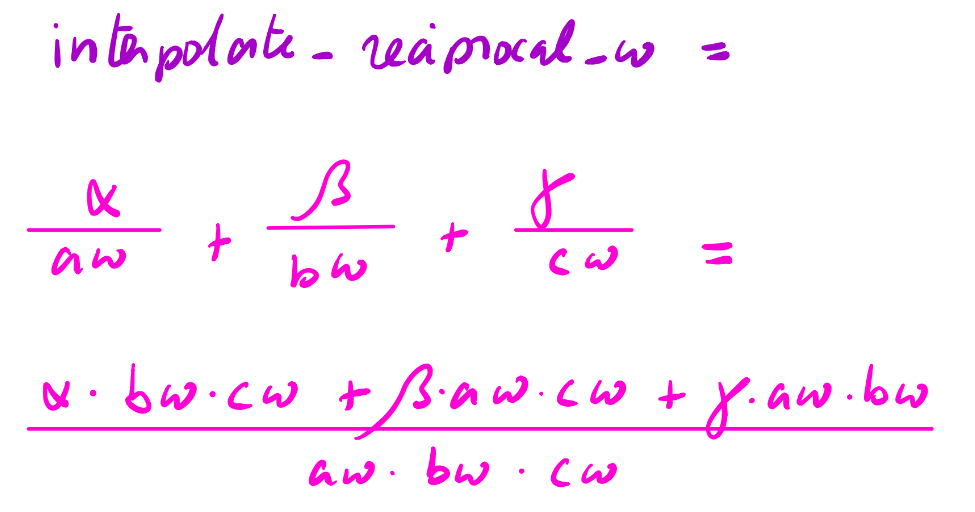 interpolate_reciprocal_w =
α/aw + β/bw + γ/cw =
(α · bw · cw + β · aw · cw + γ · aw · bw)/(aw · bw · cw)